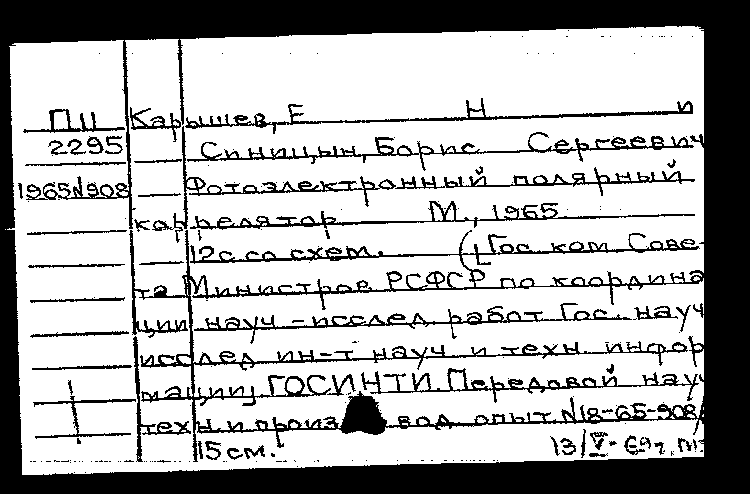 П11 Карышев, Е Н и
2295 Синицын, Борис Сергеевич
1965N908 Фотоэлектронный полярный
коррелятор М., 1965
12с. со схем. ( [ Гос ком Сове-
та Министров РСФСР по координа
ции науч-исслед. работ Гос. науч
исслед ин-т науч и техн. инфор
мации] ГОСИНТИ. Передовой науч
техн. и произ вод. опыт. N18-65-908/
15 см. 13/V-69г.